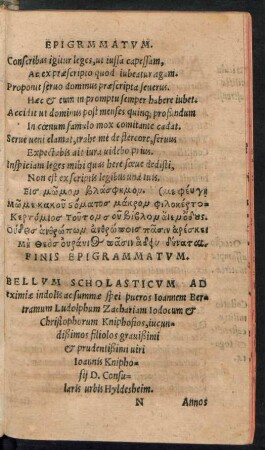 EPIGRMMATVM.
Conscribas igitur leges, ut iussa capessam,
Ac ex præscripto quod iubeatur agam.
Proponit seruo dominus præscripta seuerus.
Hæc & eum in promptu semper habere iubet.
Accidit ut dominus post menses quinq; profundum
In cœnum famulo mox comitante cadat.
Serue ueni clamat, trahe me de stercore, seruus
Expectabis ait iura uidebo prius.
Inspiciam leges mihi quas here sæue dedisti,
Non est ex scriptis legibus una tuis.
Εισ μῶμον βλάσφημον.
Μῶμε κακοῦ
Οὐδεὶς ἀνθρώπων ἀνθρώποις πᾶσιν ἀρέσκει
πᾶσιν
FINIS EPIGRAMMATVM.
BELLVM SCHOLASTICVM AD
eximiæ indolis ac summæ spei pueros Ioannem Ber-
tramum Ludolphum Zachariam Iodocum &
Christophorum Kniphosios, iucun-
dissimos filiolos grauissimi
& prudentissimi uiri
Ioannis Knipho-
sij D. Consu-
laris urbis Hyldesheim.
N Annos